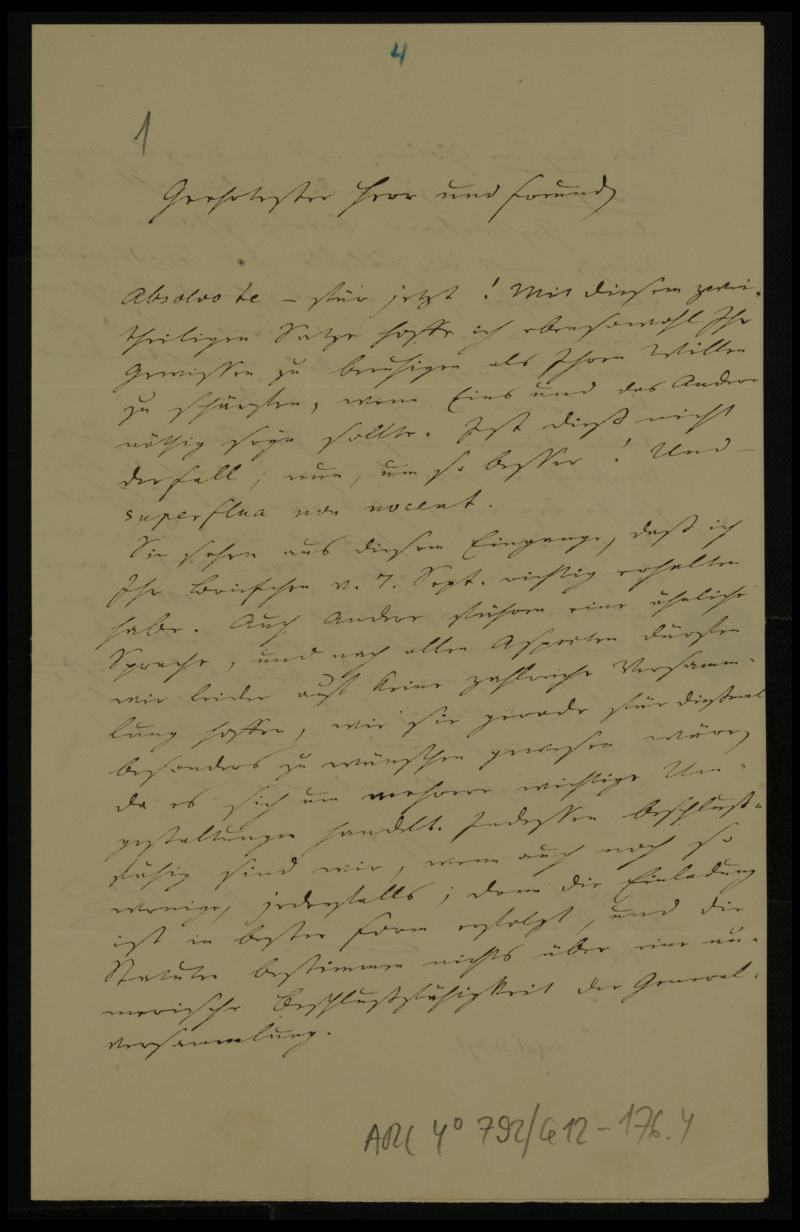 4
1
Geehrtester Herr und Freund,
Absolvo te – für jetzt! Mit diesem zwei-
theiligen Satze hoffe ich ebensowohl Ihr
Gewissen zu beruhigen als Ihren Willen
zu schärfen, wenn Eins und das Andere
nöthig seyn sollte. Ist dieß nicht
der Fall, nun, um so besser! Und –
superflua non nocent.
Sie sehen aus diesem Eingange, daß ich
Ihr Briefchen v. 7. Sept. richtig erhalten
habe. Auch Andere führen eine ähnliche
Sprache, und nach allen Aspecten dürfen
wir leider auf keine zahlreiche Versamm-
lung hoffen, wie sie gerade für dießmal
besonders zu wünschen gewesen wäre,
da es sich um mehrere wichtige Um-
gestaltungen handelt. Indessen beschluß-
fähig sind wir, wenn auch noch so
wenige, jedenfalls; denn die Einladung
ist in bester Form erfolgt, und die
Statuten bestimmen nichts über eine nu-
merische Beschlußfähigkeit der General-
versammlung.
ARC 4° 792/G12-176.4